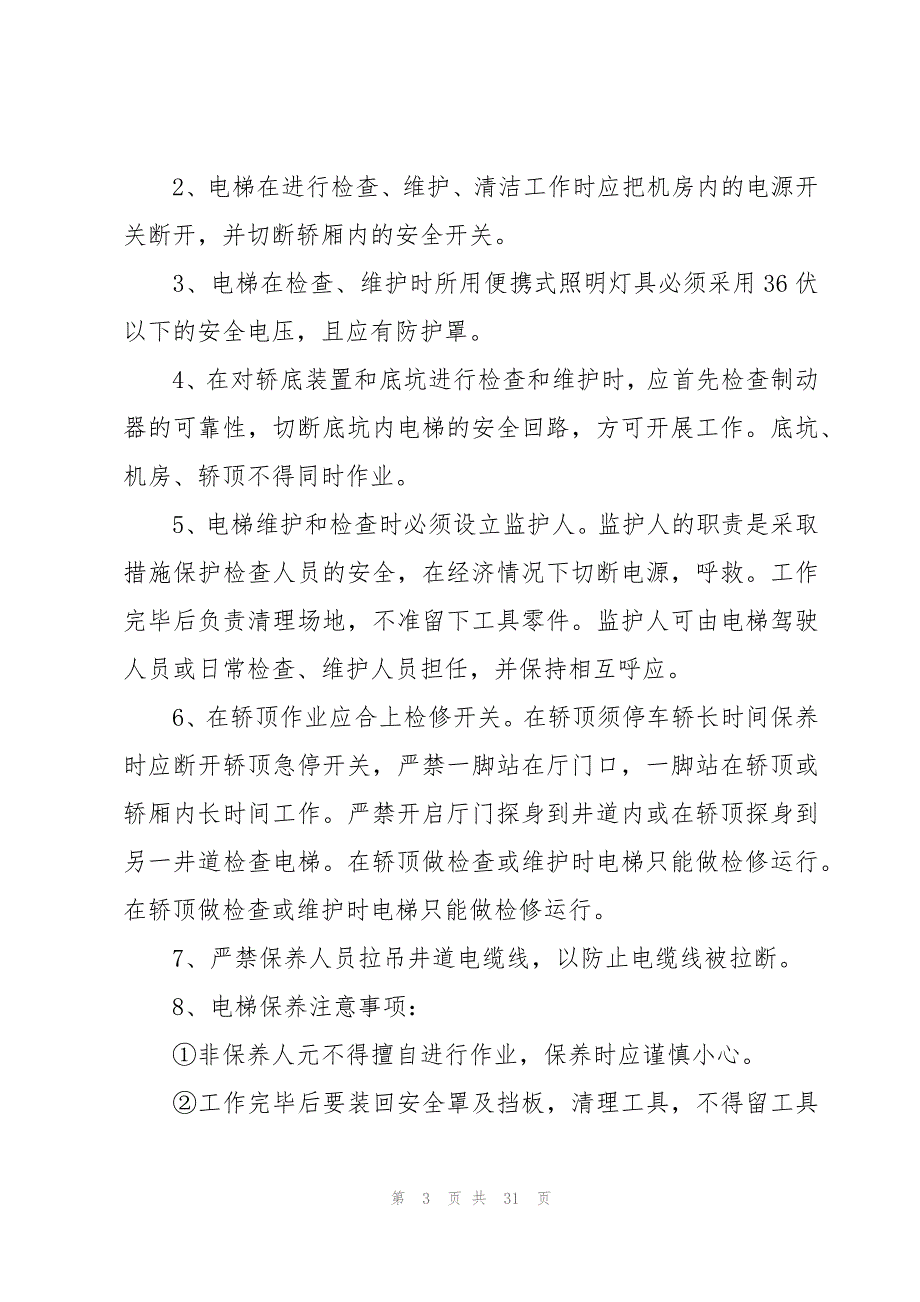 2、电梯在进行检查、维护、清洁工作时应把机房内的电源开
关断开，并切断轿厢内的安全开关。
3、电梯在检查、维护时所用便携式照明灯具必须采用 36 伏
以下的安全电压，且应有防护罩。
4、在对轿底装置和底坑进行检查和维护时，应首先检查制动
器的可靠性，切断底坑内电梯的安全回路，方可开展工作。底坑、
机房、轿顶不得同时作业。
5、电梯维护和检查时必须设立监护人。监护人的职责是采取
措施保护检查人员的安全，在经济情况下切断电源，呼救。工作
完毕后负责清理场地，不准留下工具零件。监护人可由电梯驾驶
人员或日常检查、维护人员担任，并保持相互呼应。
6、在轿顶作业应合上检修开关。在轿顶须停车轿长时间保养
时应断开轿顶急停开关，严禁一脚站在厅门口，一脚站在轿顶或
轿厢内长时间工作。严禁开启厅门探身到井道内或在轿顶探身到
另一井道检查电梯。在轿顶做检查或维护时电梯只能做检修运行。
在轿顶做检查或维护时电梯只能做检修运行。
7、严禁保养人员拉吊井道电缆线，以防止电缆线被拉断。
8、电梯保养注意事项：
①非保养人元不得擅自进行作业，保养时应谨慎小心。
②工作完毕后要装回安全罩及挡板，清理工具，不得留工具
第 3 页 共 31 页